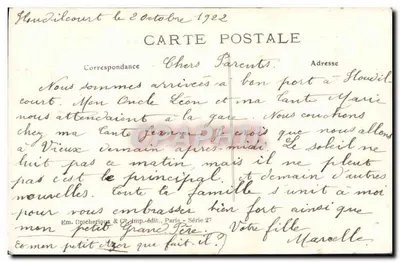 Houdilcourt le 2 Octobre 1922
CARTE POSTALE
Correspondance Chers Parents. Adresse
Nous sommes arrivées à bon port à Houdil
court. Mon Oncle Léon et ma tante Marie
nous attendaient à la gare. Nous couchons
chez ma tante que nous allons
à Vieux demain après-midi. Le soleil ne
luit pas ce matin mais il ne pleut
pas c'est le principal, et demain d'autres
nouvelles. Toute la famille s'unit à moi
pour vous embrasser bien fort ainsi que
mon petit Grand Père. Votre fille
Em. & Cie, imp.-édit., Paris - Série 27
Et mon petit que fait-il? Marcelle